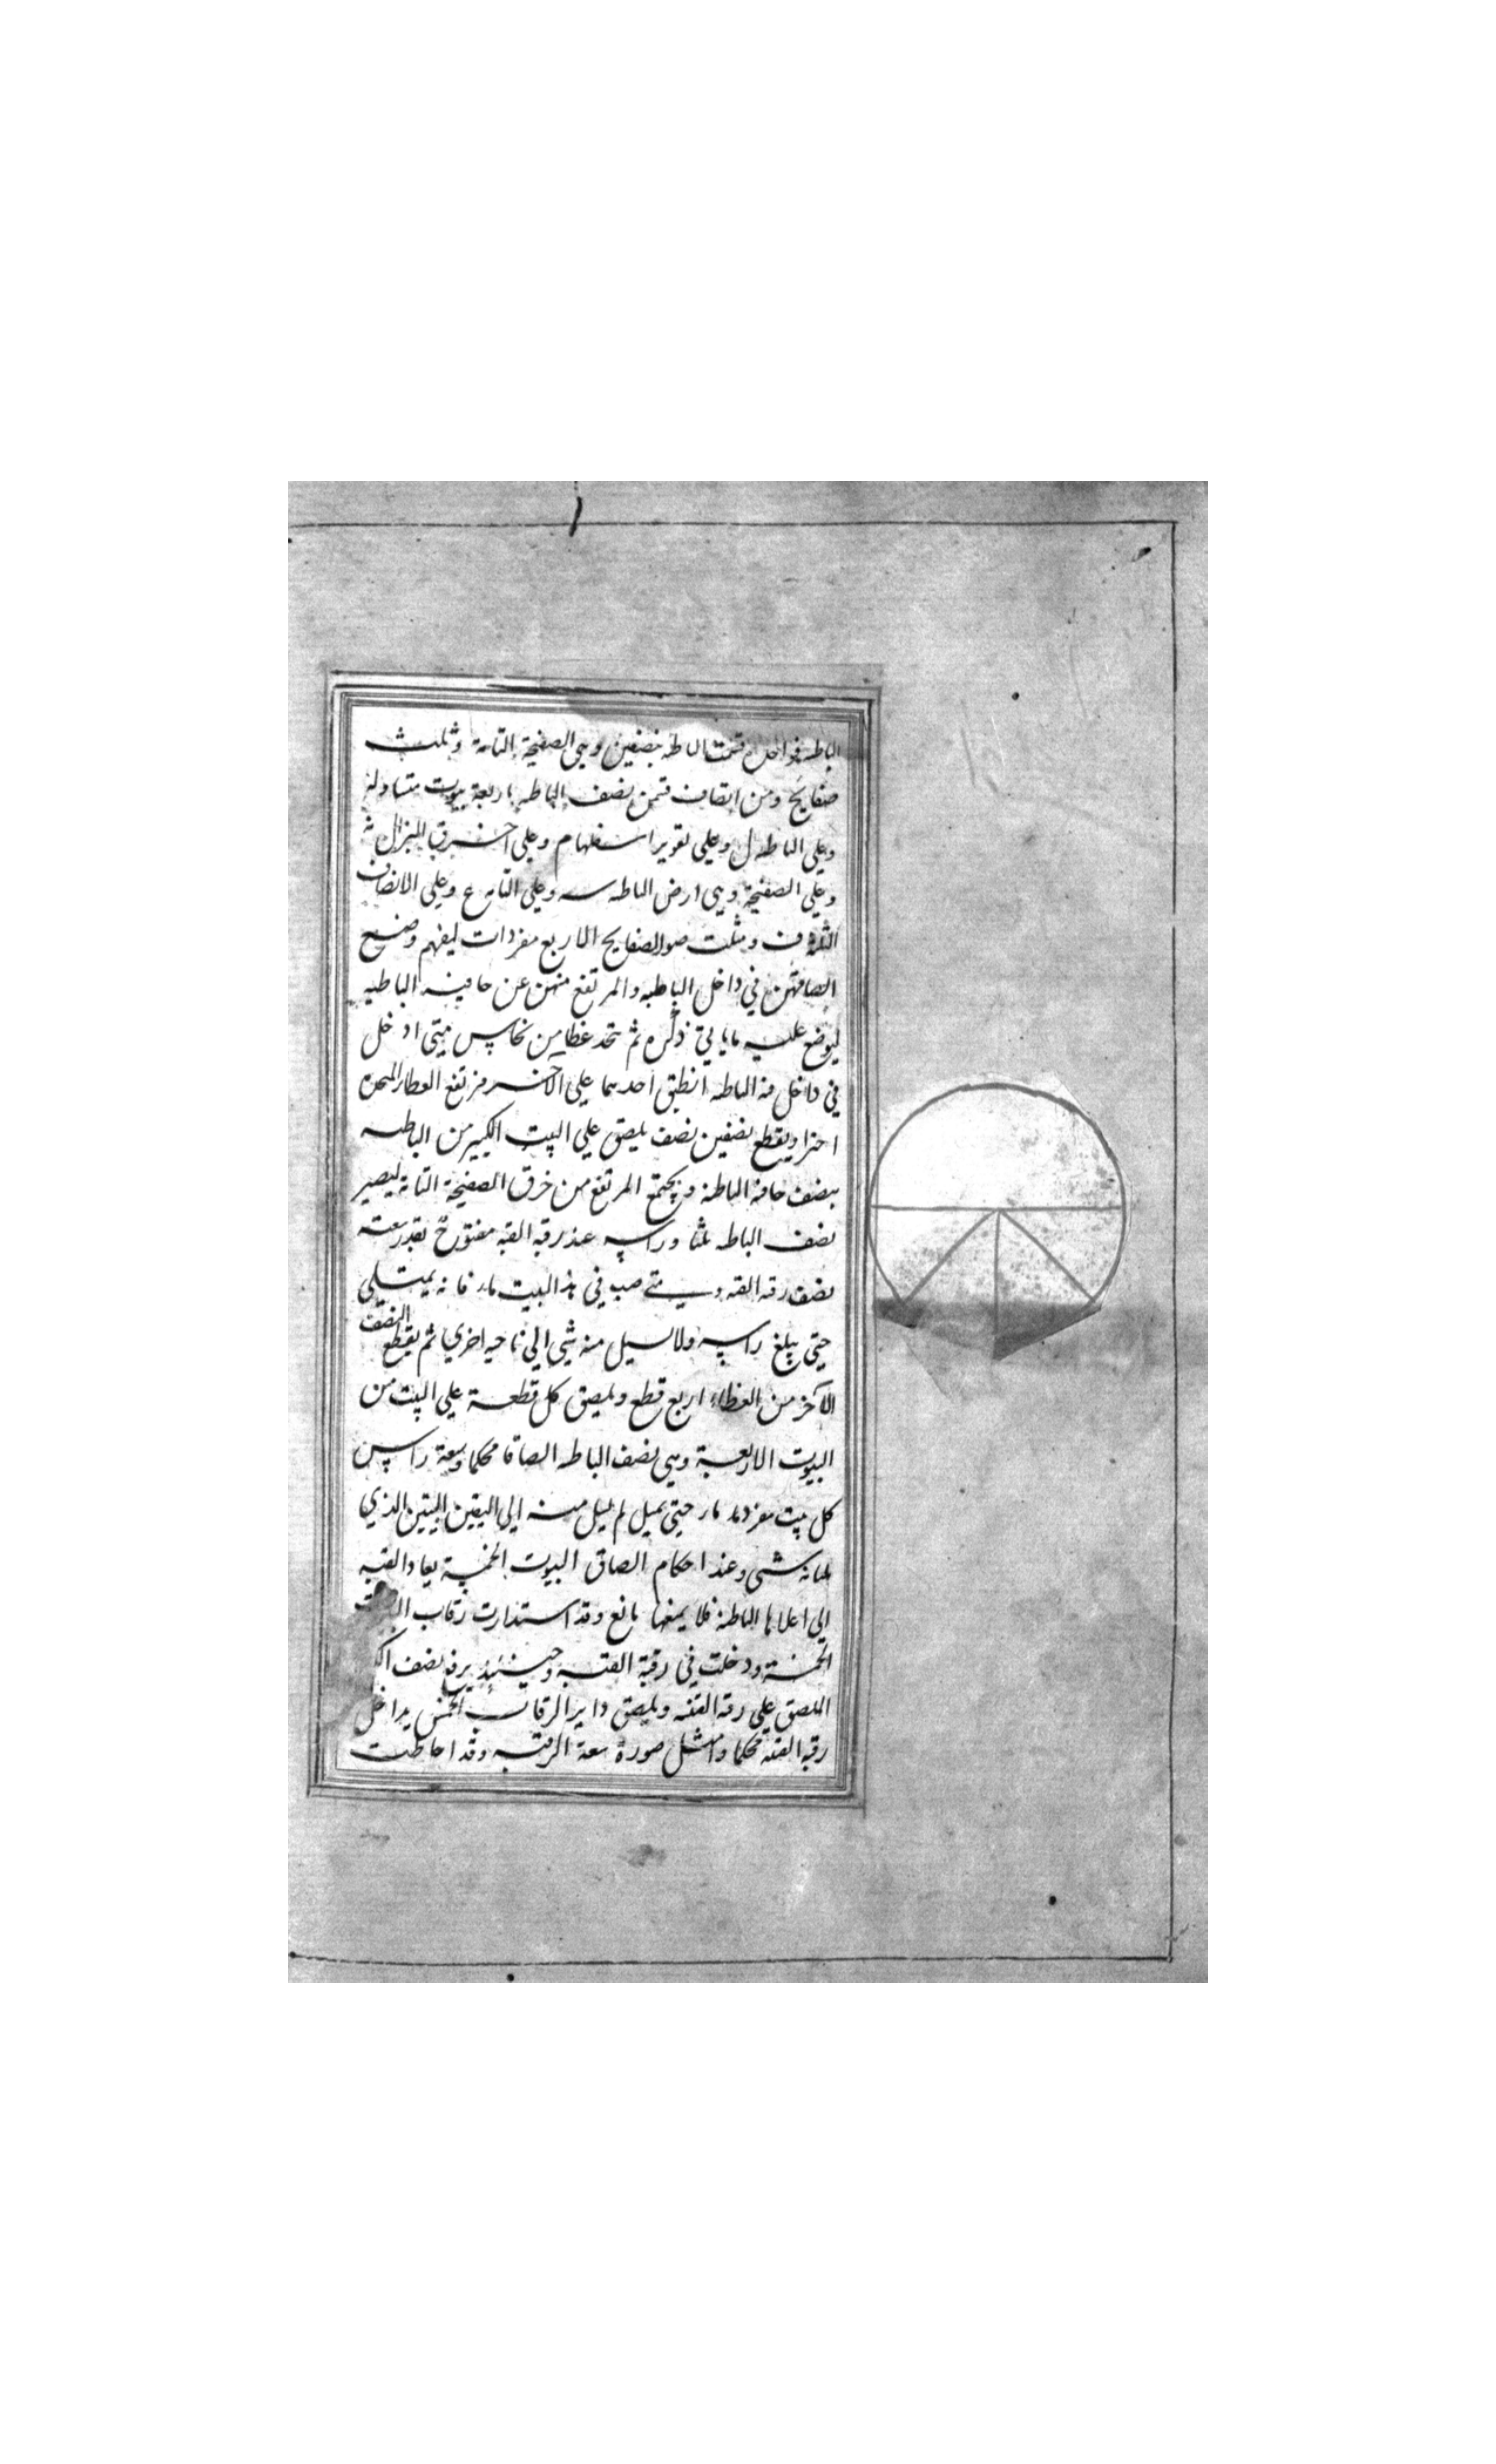 الباطيه فواحده قسمت الباطه بنصفين وهي الصفيحة التامة وثلث
صفايح ومن انصاف قسمن نصف الباطه باربعة بيوت متساوية
وعلي الباطه ل وعلي تقوير اسفلها م وعلي اخر خرق المنزال
وعلي الصفيحة وهي ارض الباطه سه وعلي التامه ع وعلي الانصاف
الثلثه ف ومثلت صور الصفايح الاربع مفردات ليفهم وضع
الصاقهن في داخل الباطيه والمرتفع منهن عن حافيه الباطيه
ليوضع عليه ما ياتي ذكره ثم تتخذ غطا من نحاس متي ادخل
في داخل فه الباطه انطبق احدهما علي الآخر مرتفع الغطا
ويقطع نصفين نصف يلصق علي البيت الكبير من الباطيه
بنصف حافه الباطه ويجتمع المرتفع من خرق الصفيحة التامة ليصير
نصف الباطه وراسه عند رقبه القبه مفتوح بقدر سعته
نصف رقبه القبه ومتي صب في هذا البيت ماء فانه يمتلي
حتي يبلغ راسه ولا يسيل منه شي الي ناحيه اخري ثم يقطع النصف
الآخر من الغطاء اربع قطع ويلصق كل قطعة علي البيت من
البيوت الاربعة وهي نصف الباطه الصاقا محكما وسعة راس
كل بيت مفرد ماء حتي يميل لم يسل منه الي البيتين الذي
يليانه شي وعند احكام الصاق البيوت الخمسة يعاد القبه
الي اعلا الباطه فلا يمنعها مانع وقد استدارت رقاب
الخمسة ودخلت في رقبة القبه وحينئذ يرفع نصف
الملصق علي رقبه القبه ويلصق داير الرقاب الخمس بداخل
رقبه القبه محكما وامثل صورة سعة الرقبه وقد احاطت